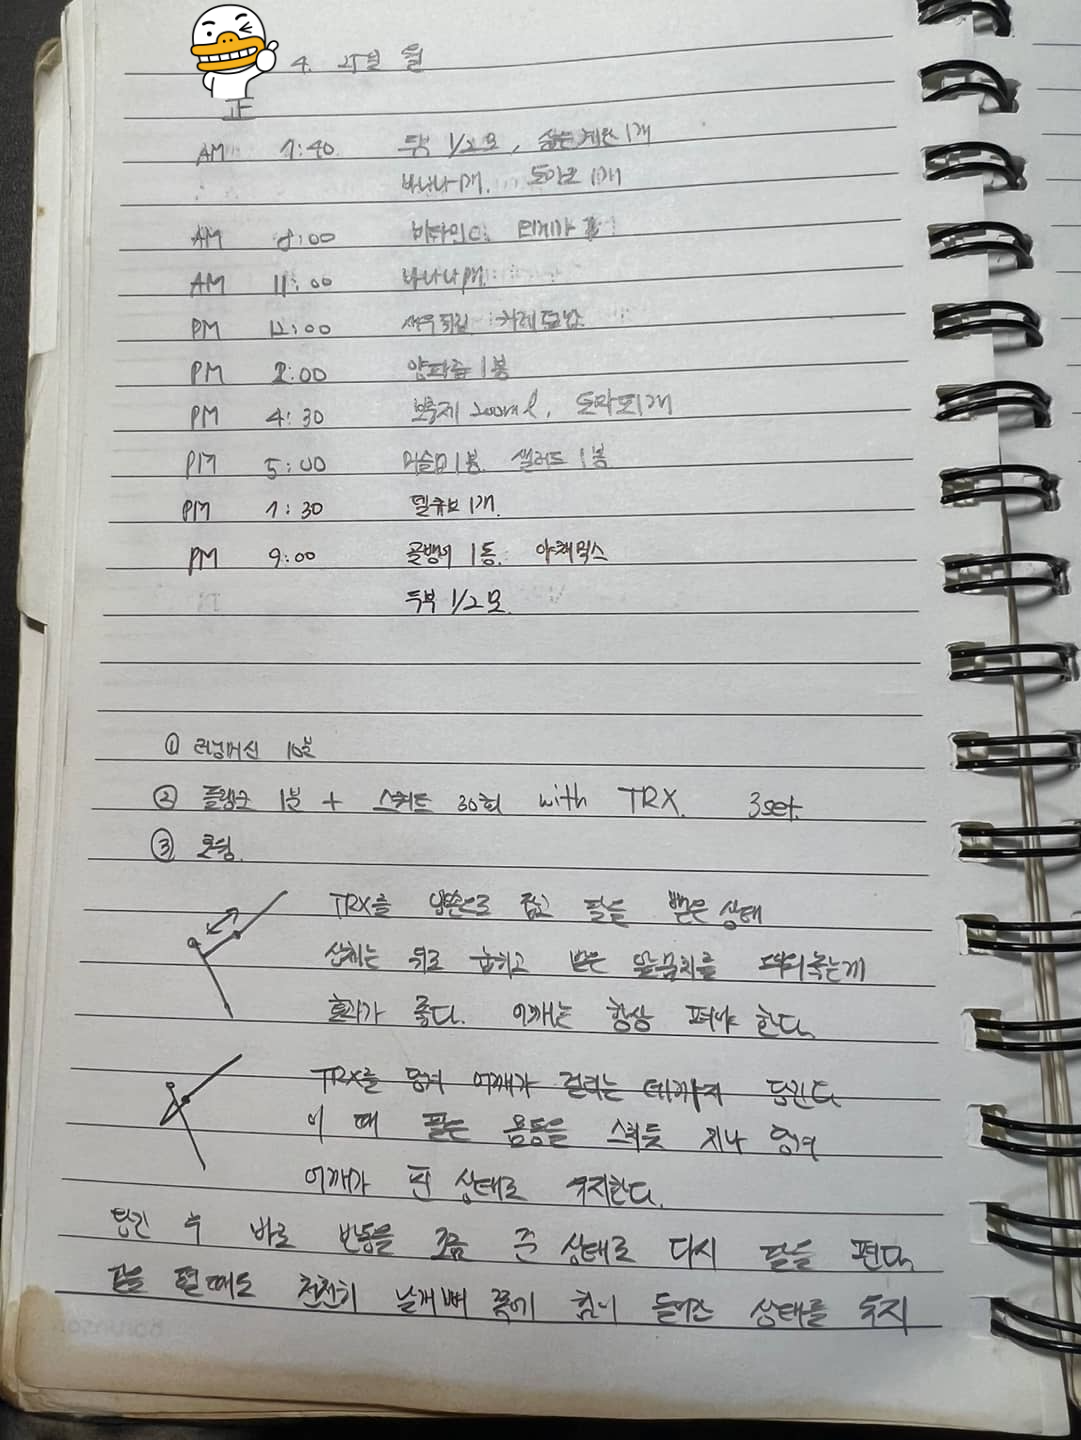 4. 25일 월
正
AM 7:40 두부 1/2모, 삶은계란 1개
바나나 1개. 토마토 1개
AM 8:00 비타민C. 오메가
AM 11:00 바나나 1개.
PM 12:00 새우튀김 카레
PM 2:00 양파즙 1봉
PM 4:30 보충제 200ml, 토마토 1개
PM 5:00 1봉. 샐러드 1봉
PM 7:30 1개.
PM 9:00 골뱅이 1통. 야채믹스
두부 1/2모.
① 러닝머신 10분
② 플랭크 1분 + 스쿼트 30회 with TRX. 3set.
③ 로잉.
TRX를 양손으로 잡고 팔을 뻗은 상태
상체는 뒤로 눕히고 발은 앞꿈치를 효과가 좋다. 어깨는 항상 펴야 한다.
TRX를 당겨 어깨가 걸리는 데까지 당긴다
이 때 팔은 몸통을 스쳐듯 지나 당겨
어깨가 핀 상태로 유지한다.
당긴 후 바로 반동을 조금 준 상태로 다시 팔을 편다.
팔을 펼 때도 천천히 날개뼈 쪽에 힘이 들어간 상태를 유지